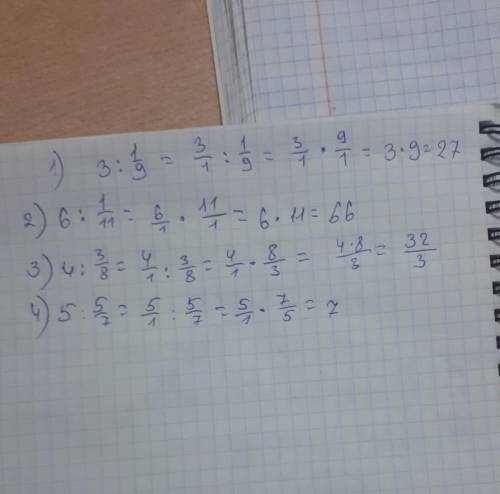 1) 3 : 1/9 = 3/1 : 1/9 = 3/1 · 9/1 = 3·9=27
2) 6 : 1/11 = 6/1 · 11/1 = 6·11=66
3) 4 : 3/8 = 4/1 : 3/8 = 4/1 · 8/3 = 4·8/3 = 32/3
4) 5 : 5/7 = 5/1 : 5/7 = 5/1 · 7/5 = 7